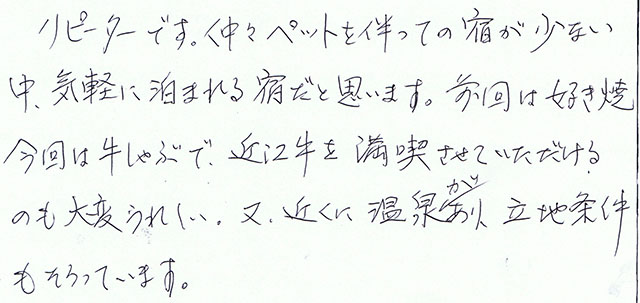 リピーターです。仲々ペットを伴っての宿が少ない
中、気軽に泊まれる宿だと思います。前回は好き焼
今回は牛しゃぶで、近江牛を満喫させていただける
のも大変うれしい。又、近くに温泉があり、立地条件
もそろっています。